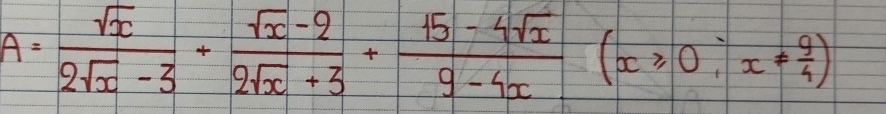 A = \frac{\sqrt{x}}{2\sqrt{x} - 3} + \frac{\sqrt{x} - 2}{2\sqrt{x} + 3} + \frac{15 - 4\sqrt{x}}{9 - 4x} (x ⩾ 0 ; x ≠ \frac{9}{4})